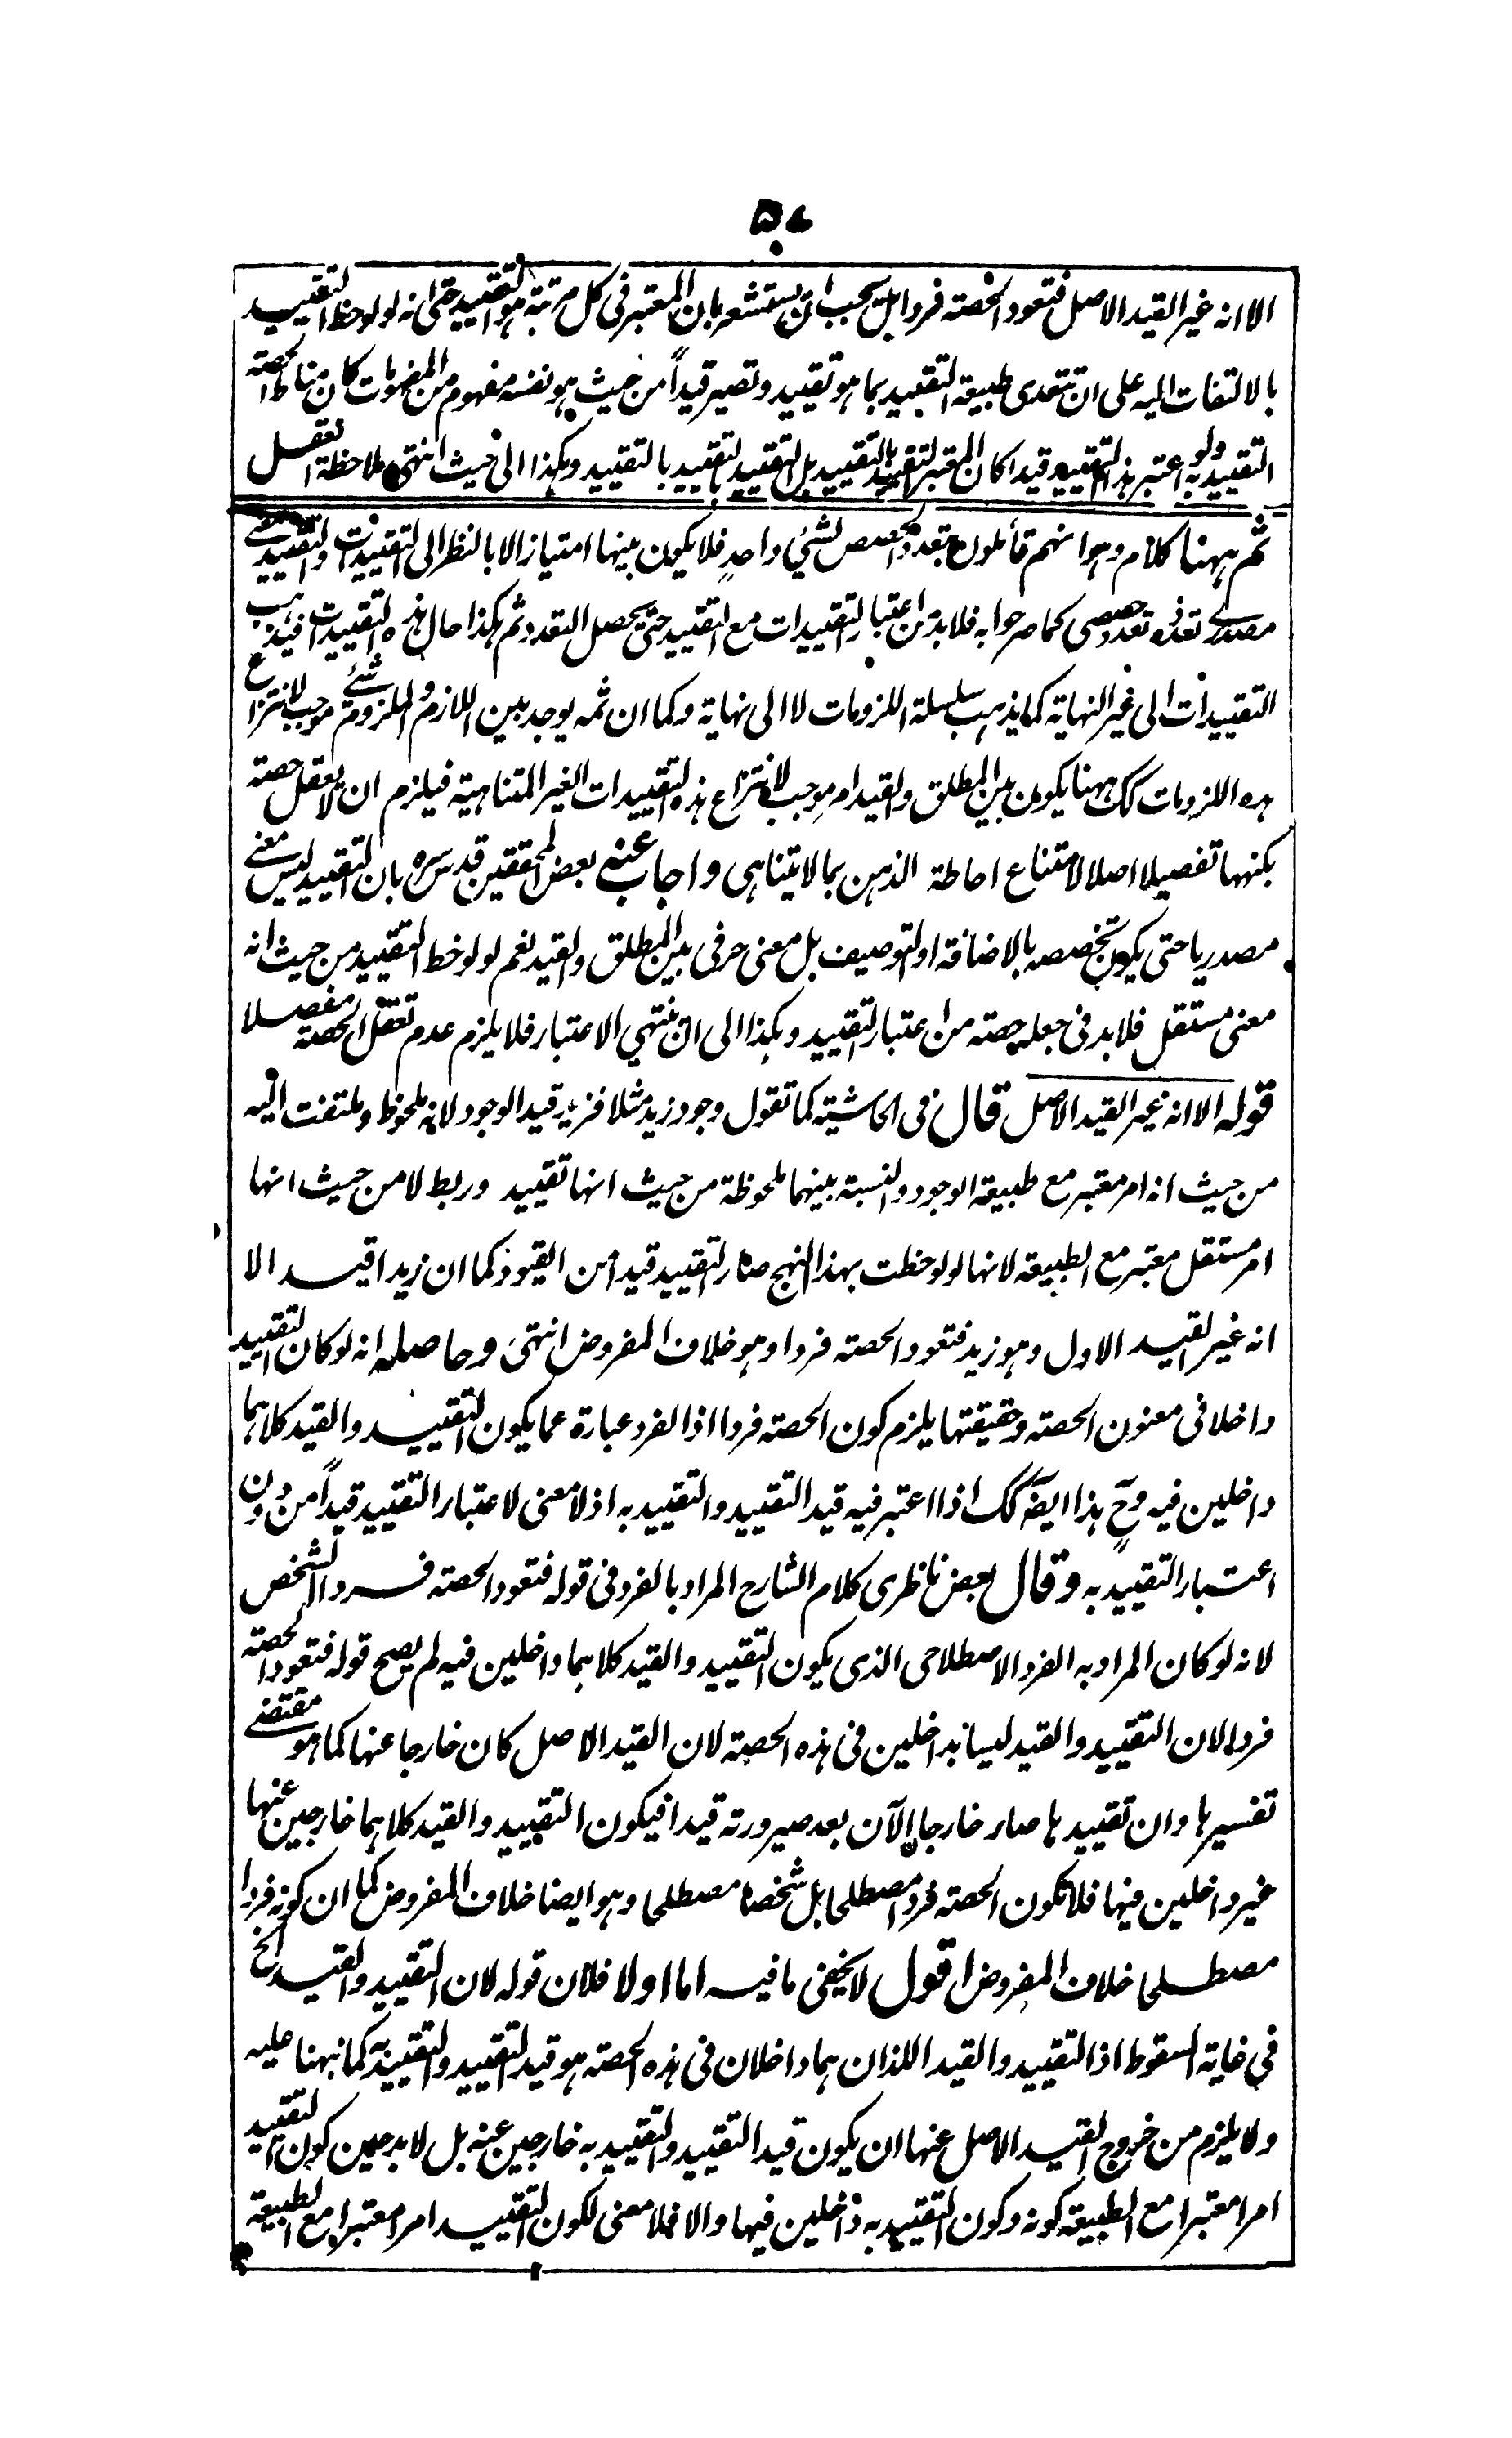 ٥٧
الا انه غير القيد الاصل فتعود الحصة فردا بل يجب ان يستشعر بان المعتبر فى كل مرتبة هو التقييد حتى انه لو لوحظ التقييد
بالالتفات اليه على ان تتعدى طبيعة التقييد بما هو تقييد وتصير قيداً من حيث هو نفسه مفهوم من المفهومات كان مناط الحصة
التقييد به ولو اعتبر هذا التقييد قيدا كان المعتبر التقييد بالتقييد بل التقييد بالتقييد بالتقييد وهكذا الى حيث انتهى ملاحظة العقل
ثم ههنا كلام وهو انهم قائلون بتعدد الحصص لشئ واحدٍ فلا يكون بينها امتياز الا بالنظر الى التقييدات والتقييد معنى
مصدرى تعدده تعدد حصصى كما صرحوا به فلا بد من اعتبار التقييدات مع التقييد حتى يحصل التعدد ثم هكذا حال هذه التقييدات فيذهب
التقييدات الى غير النهاية كما يذهب سلسلة اللزومات لا الى نهاية وكما ان ثمه يوجد بين اللازم والملزوم شئ موجب لانتزاع
هذه اللزومات كك ههنا يكون بين المطلق والقيد امر موجب لانتزاع هذه التقييدات الغير المتناهية فيلزم ان لا يعقل حصة
بكنهها تفصيلا اصلا لامتناع احاطة الذهن بما لا يتناهى واجاب عنه بعض المحققين قدس سره بان التقييد ليس معنى
مصدريا حتى يكون تخصصه بالاضافة او التوصيف بل معنى حرفى بين المطلق والقيد نعم لو لوحظ التقييد من حيث انه
معنى مستقل فلا بد فى جعله حصة من اعتبار التقييد وهكذا الى ان ينتهي الاعتبار فلا يلزم عدم تعقل الحصة مفصلا
قوله الا انه غير القيد الاصل قال فى الحاشية كما تقول وجود زيد مثلا فزيد قيد الوجود لانه ملحوظ وملتفت اليه
من حيث انه امر معتبر مع طبيعة الوجود والنسبة بينهما ملحوظة من حيث انها تقييد وربط لا من حيث انها
امر مستقل معتبر مع الطبيعة لانها لو لوحظت بهذا النهج صار التقييد قيدا من القيود كما ان زيدا قيد الا
انه غير القيد الاول وهو زيد فتعود الحصة فردا وهو خلاف المفروض انتهى وحاصله انه لو كان التقييد
داخلا فى معنون الحصة وحقيقتها يلزم كون الحصة فردا اذ الفرد عبارة عما يكون التقييد والقيد كلاهما
داخلين فيه وح هذا ايضا كك اذا اعتبر فيه قيد التقييد والتقييد به اذ لا معنى لاعتبار التقييد قيداً من دون
اعتبار التقييد به وقال بعض ناظرى كلام الشارح المراد بالفرد فى قوله فتعود الحصة فردا الشخص
لانه لو كان المراد به الفرد الاصطلاحى الذى يكون التقييد والقيد كلاهما داخلين فيه لم يصح قوله فتعود الحصة
فردا لان التقييد والقيد ليسا بداخلين فى هذه الحصة لان القيد الاصل كان خارجا عنها كما هو مقتضى
تفسيرها وان تقييدها صار خارجا الآن بعد صيرورته قيدا فيكون التقييد والقيد كلاهما خارجين عنها
غير داخلين فيها فلا تكون الحصة فردا مصطلحا بل شخصا مصطلحا وهو ايضا خلاف المفروض كما ان كونه فردا
مصطلحا خلاف المفروض اقول لا يخفى ما فيه اما اولا فلان قوله لان التقييد والقيد الخ
في غاية السقوط اذ التقييد والقيد اللذان هما داخلان فى هذه الحصة هو قيد التقييد والتقييد به كما نبهنا عليه
ولا يلزم من خروج القيد الاصل عنها ان يكون قيد التقييد والتقييد به خارجين عنه بل لا بد حين كون التقييد
امرا معتبرا مع الطبيعة كونه وكون التقييد به داخلين فيها والا فلا معنى لكون التقييد امرا معتبرا مع الطبيعة